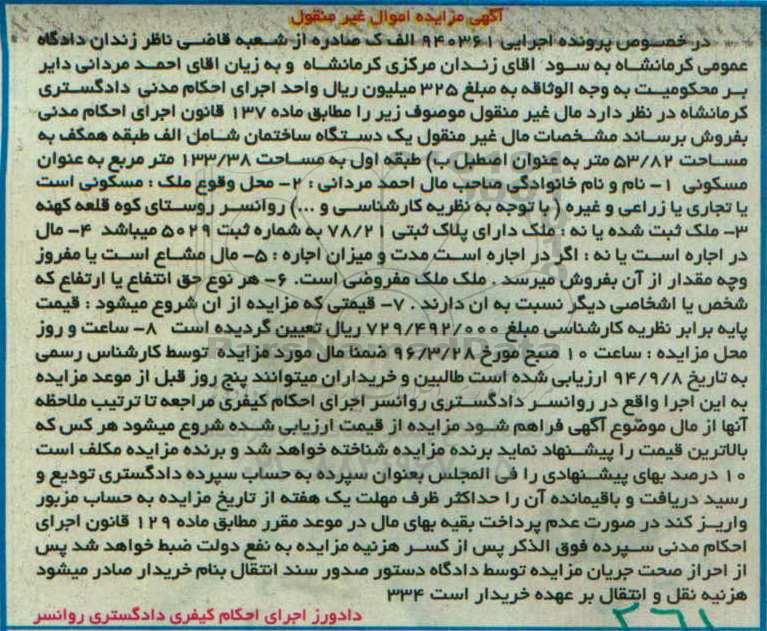 آگهی مزایده اموال غیر منقول
در خصوص پرونده اجرایی ۹۴۰۳۶۱ الف ک صادره از شعبه قاضی ناظر زندان دادگاه
عمومی کرمانشاه به سود اقای زندان مرکزی کرمانشاه و به زیان اقای احمد مردانی دایر
بر محکومیت به وجه الوثاقه به مبلغ ۳۲۵ میلیون ریال واحد اجرای احکام مدنی دادگستری
کرمانشاه در نظر دارد مال غیر منقول موصوف زیر را مطابق ماده ۱۳۷ قانون اجرای احکام مدنی
بفروش برساند مشخصات مال غیر منقول یک دستگاه ساختمان شامل الف طبقه همکف به
مساحت ۵۳/۸۲ متر به عنوان اصطبل ب) طبقه اول به مساحت ۱۳۳/۳۸ متر مربع به عنوان
مسکونی ۱- نام و نام خانوادگی صاحب مال احمد مردانی : ۲- محل وقوع ملک : مسکونی است
یا تجاری یا زراعی و غیره ( با توجه به نظریه کارشناسی و ...) روانسر روستای کوه قلعه کهنه
۳- ملک ثبت شده یا نه : ملک دارای پلاک ثبتی ۷۸/۲۱ به شماره ثبت ۵۰۲۹ میباشد ۴- مال
در اجاره است یا نه : اگر در اجاره است مدت و میزان اجاره : ۵- مال مشاع است یا مفروز
وچه مقدار از آن بفروش میرسد . ملک ملک مفروضی است. ۶- هر نوع حق انتفاع یا ارتفاع که
شخص یا اشخاصی دیگر نسبت به ان دارند . ۷- قیمتی که مزایده از ان شروع میشود : قیمت
پایه برابر نظریه کارشناسی مبلغ ۷۲۹/۴۹۲/۰۰۰ ریال تعیین گردیده است ۸- ساعت و روز
محل مزایده : ساعت ۱۰ صبح مورخ ۹۶/۳/۲۸ ضمنا مال مورد مزایده توسط کارشناس رسمی
به تاریخ ۹۴/۹/۸ ارزیابی شده است طالبین و خریداران میتوانند پنج روز قبل از موعد مزایده
به این اجرا واقع در روانسر دادگستری روانسر اجرای احکام کیفری مراجعه تا ترتیب ملاحظه
آنها از مال موضوع آگهی فراهم شود مزایده از قیمت ارزیابی شده شروع میشود هر کس که
بالاترین قیمت را پیشنهاد نماید برنده مزایده شناخته خواهد شد و برنده مزایده مکلف است
۱۰ درصد بهای پیشنهادی را فی المجلس بعنوان سپرده به حساب سپرده دادگستری تودیع و
رسید دریافت و باقیمانده آن را حداکثر ظرف مهلت یک هفته از تاریخ مزایده به حساب مزبور
واریز کند در صورت عدم پرداخت بقیه بهای مال در موعد مقرر مطابق ماده ۱۲۹ قانون اجرای
احکام مدنی سپرده فوق الذکر پس از کسر هزنیه مزایده به نفع دولت ضبط خواهد شد پس
از احراز صحت جریان مزایده توسط دادگاه دستور صدور سند انتقال بنام خریدار صادر میشود
هزنیه نقل و انتقال بر عهده خریدار است ۳۳۴
دادورز اجرای احکام کیفری دادگستری روانسر